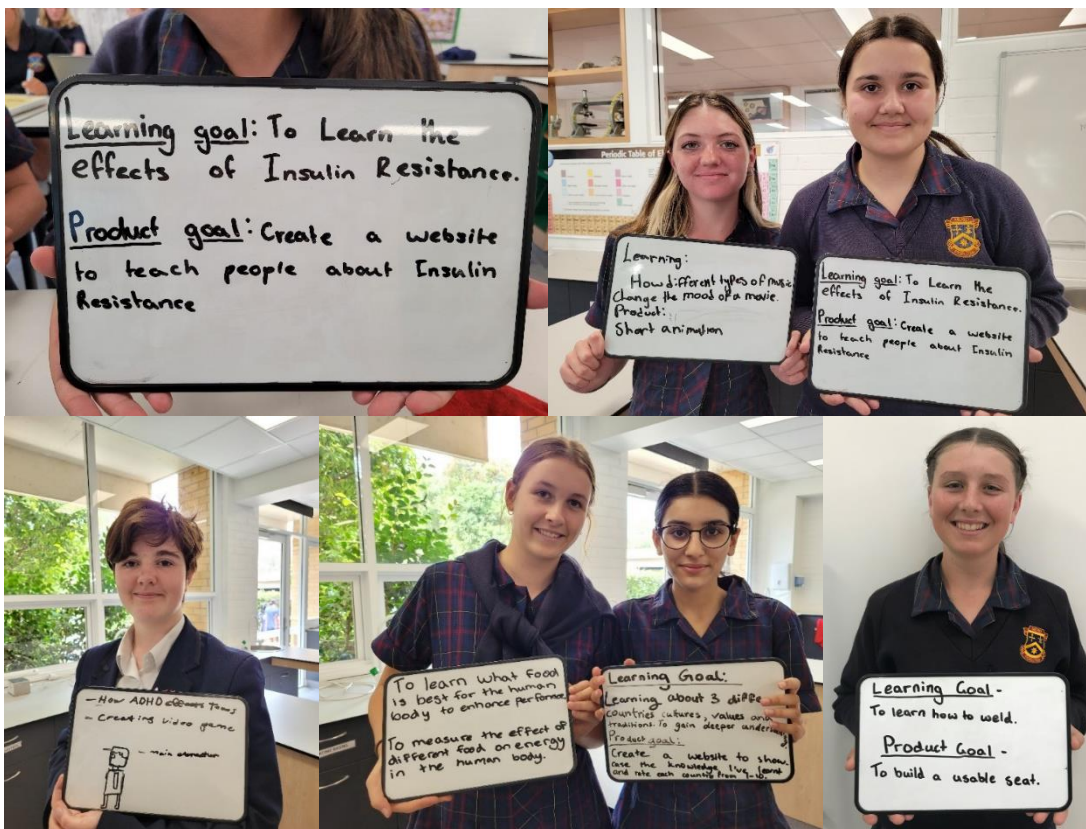 Learning goal: To Learn the
effects of Insulin Resistance.
Product goal: Create a website
to teach people about Insulin
Resistance
Periodic Table of El
Learning:
How different types of music
Change the mood of a movie.
Product:
Short animation
Learning goal: To Learn the
effects of Insulin Resistance.
Product goal: Create a website
to teach people about Insulin
Resistance
- How ADHD effects
- Creating video game
- main
To learn what food
is best for the human
body to enhance performance
To measure the effect of
different food on energy
in the human body.
Learning Goal:
Learning about 3 diffe
countries cultures, values and
traditions. To gain deeper
Product goal:
Create a website to show
case the knowledge I've learnt
and rate each country from 1-10.
Learning Goal -
To learn how to weld.
Product Goal -
To build a usable seat.